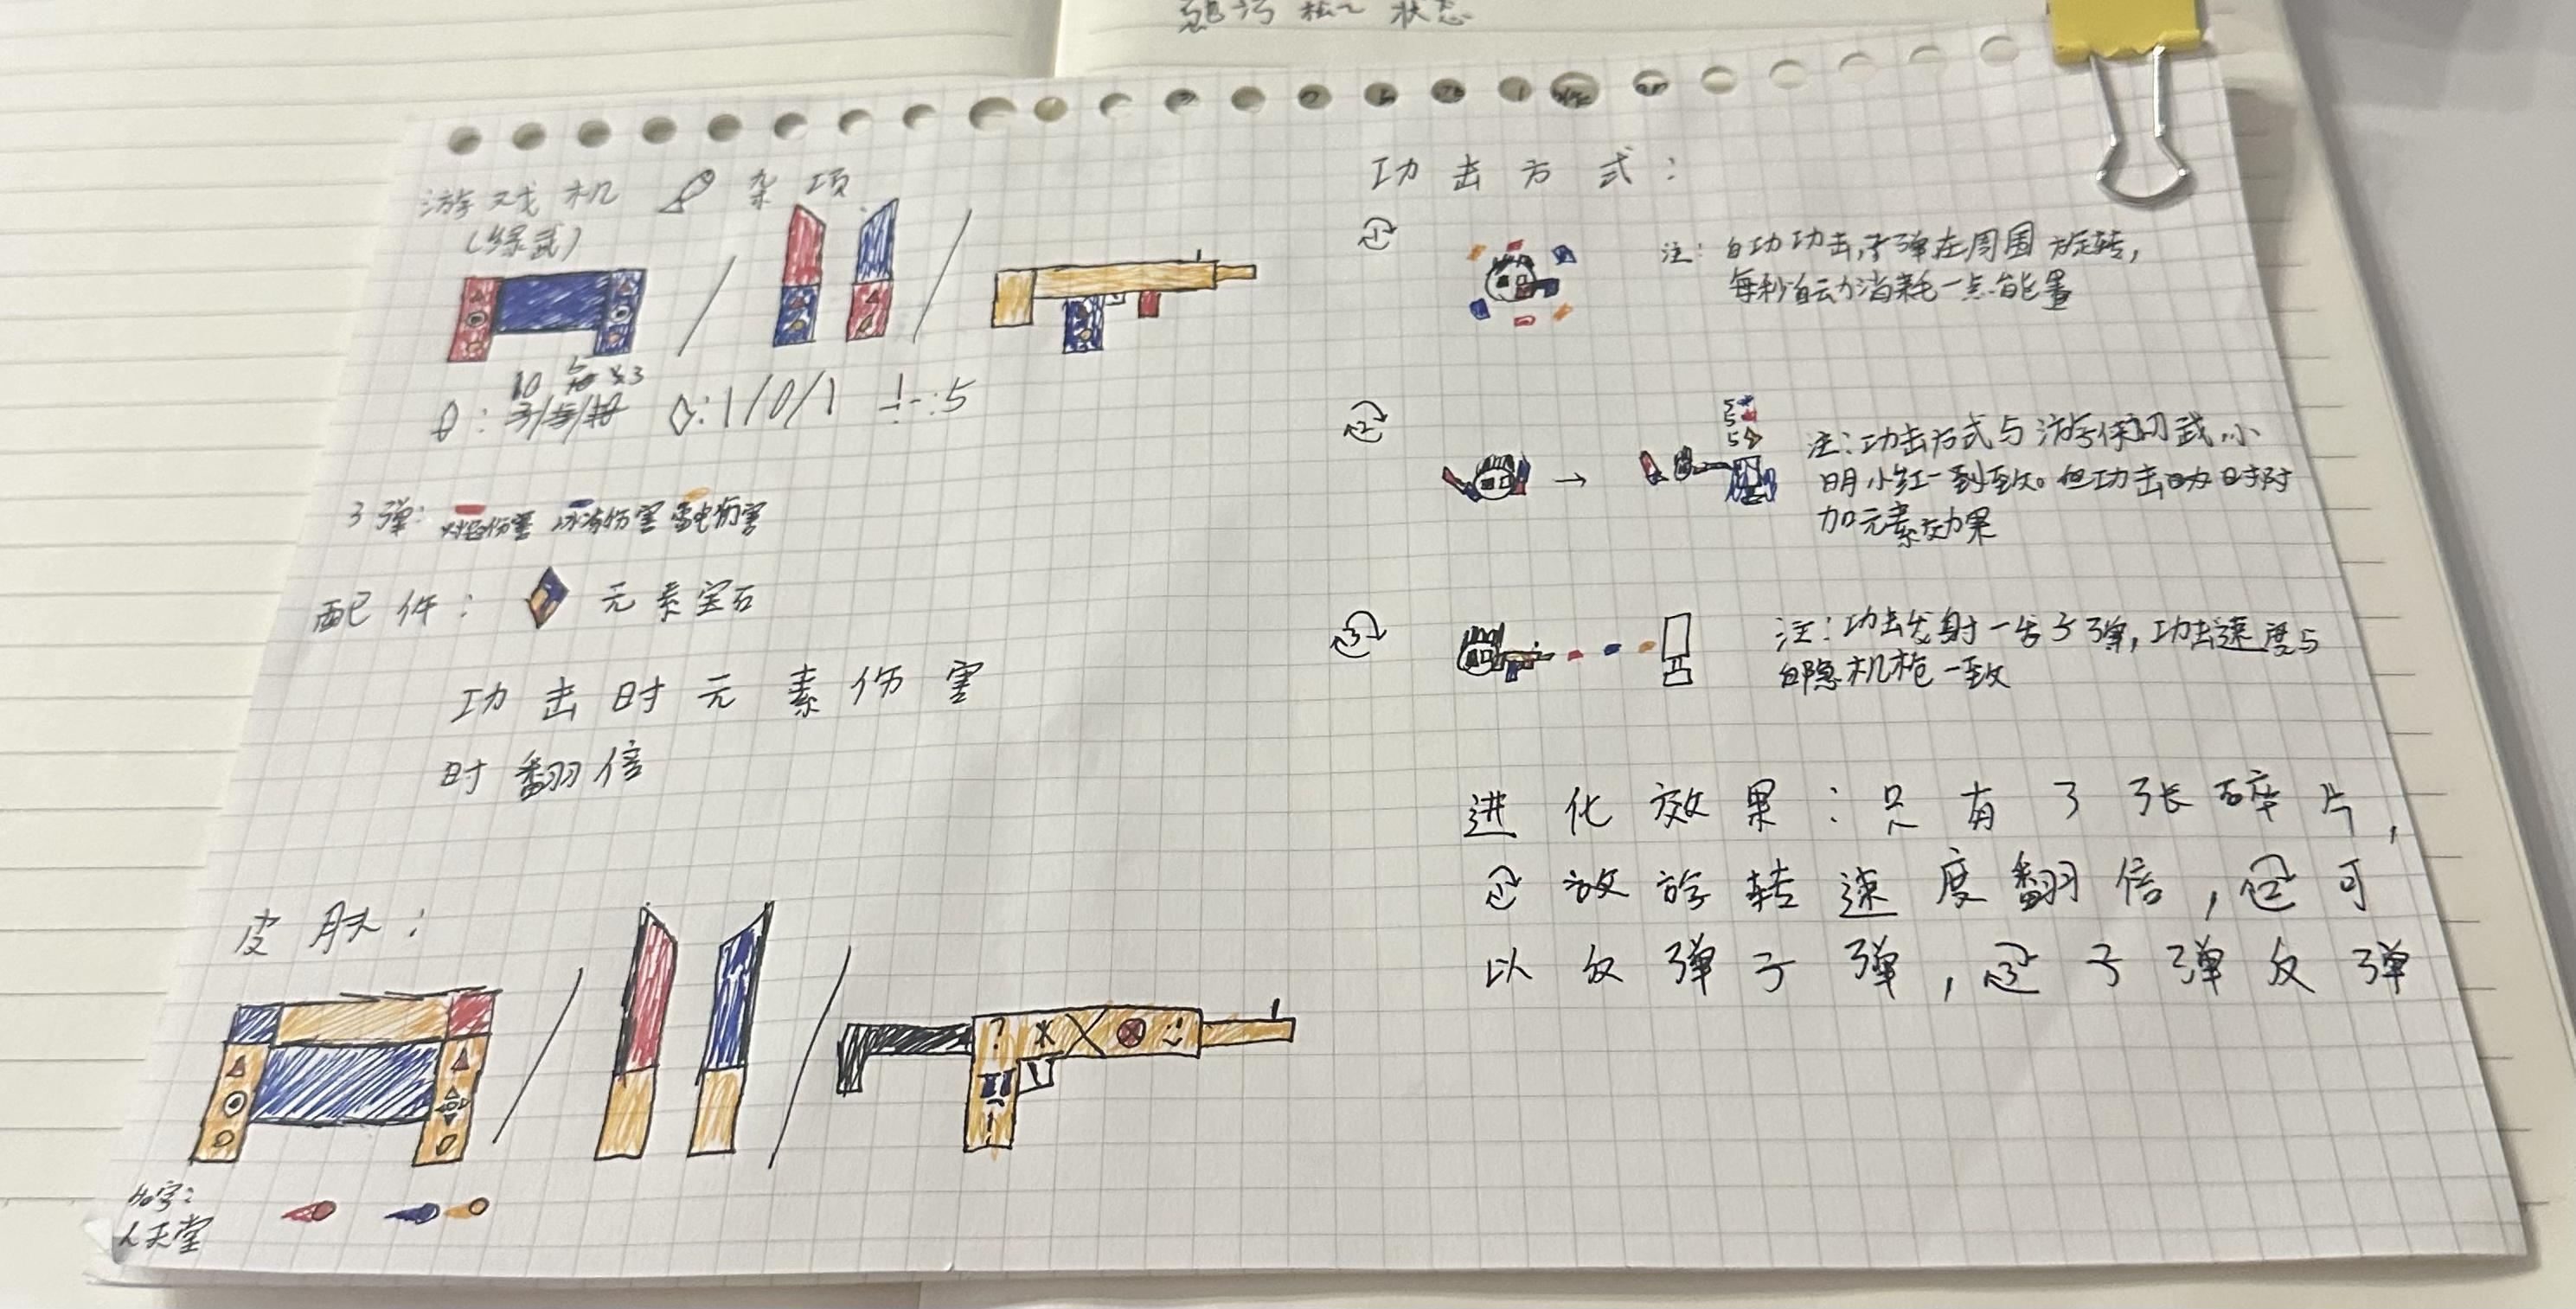 状态
游戏机 杂项
(绿武)
10 3
:1/0/1 :5
子弹: 伤害 冰冻伤害 雷电伤害
配件: 元素宝石
功击时元素伤害
时翻倍
皮肤:
名字:
人天堂
功击方式:
①
注: 自功功击,子弹在周围旋转,
每秒自动消耗一点能量
②
5
5
5
注:功击方式与 武小
明小红一到致。但功击时附
加元素效果
③
注:功击发射一告子弹,功击速度与
自隐机枪一致
进化效果:只有了张碎片,
① 放旋转速度翻倍,②可
以反弹子弹,③子弹反弹